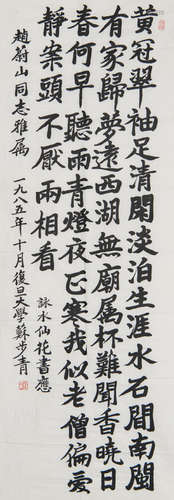 黃冠翠袖足清閑淡泊生涯水石間南閩
有家歸夢遠西湖無廟属杯難聞香曉日
春何早聽雨青燈夜正寒我似老僧偏愛
靜案頭不厭兩相看
詠水仙花書應
趙蔚山同志雅属
一九八五年十月復旦大學蘇步青